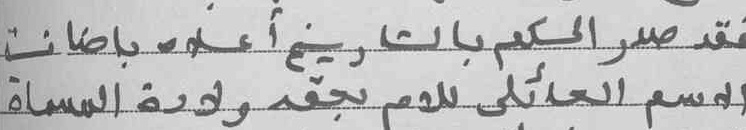 فقد صدر الحكم بالتاريخ أعلاه باضافة
الاسم العائلي للام بحقه ولادة المسماة